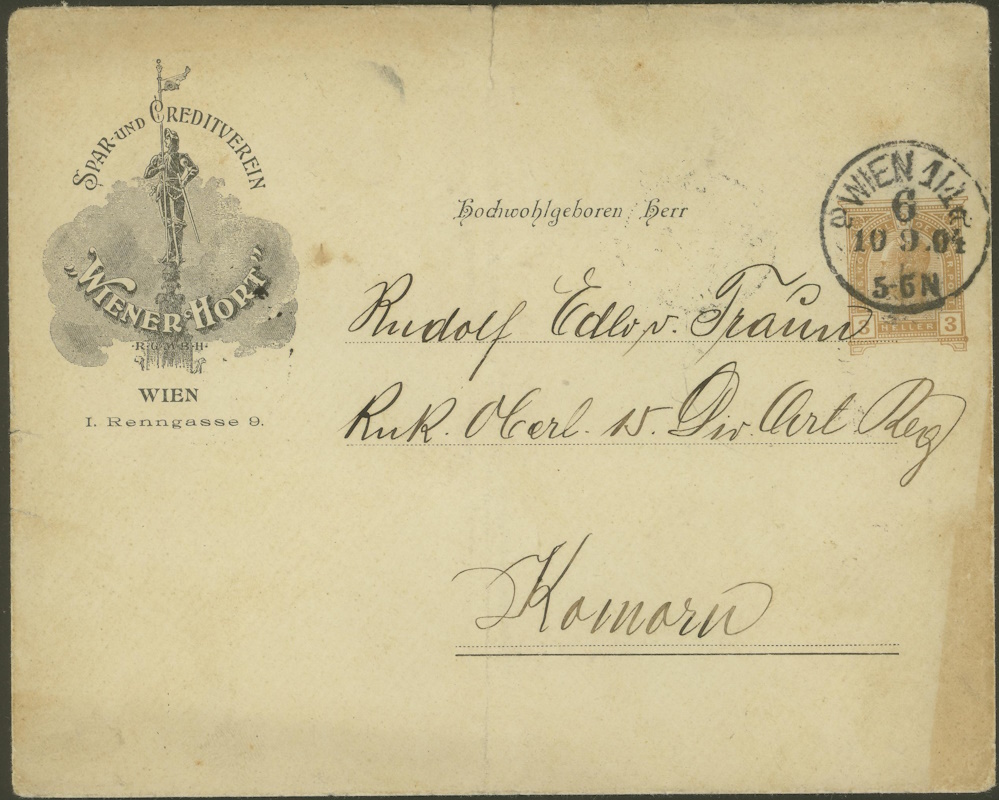 SPAR- UND CREDITVEREIN
„WIENER HORT"
· R · G · M · B · H ·
WIEN
I. Renngasse 9.
WIEN 1/1
6
10 9.04
5-6N
3 HELLER 3
Hochwohlgeboren Herr
Rudolf Edler v. Traun
KuK. Oberl. 15. Div. Art Reg
Komorn